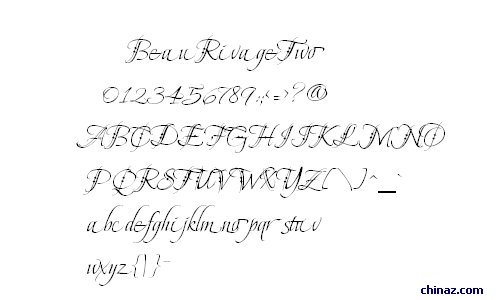 BeauRivageTwo
0123456789:;<=>?@
ABCDEFGHIJKLMNO
PQRSTUVWXYZ[\]^_`
abcdefghijklmnopqrstuv
wxyz{|}~
chinaz.com